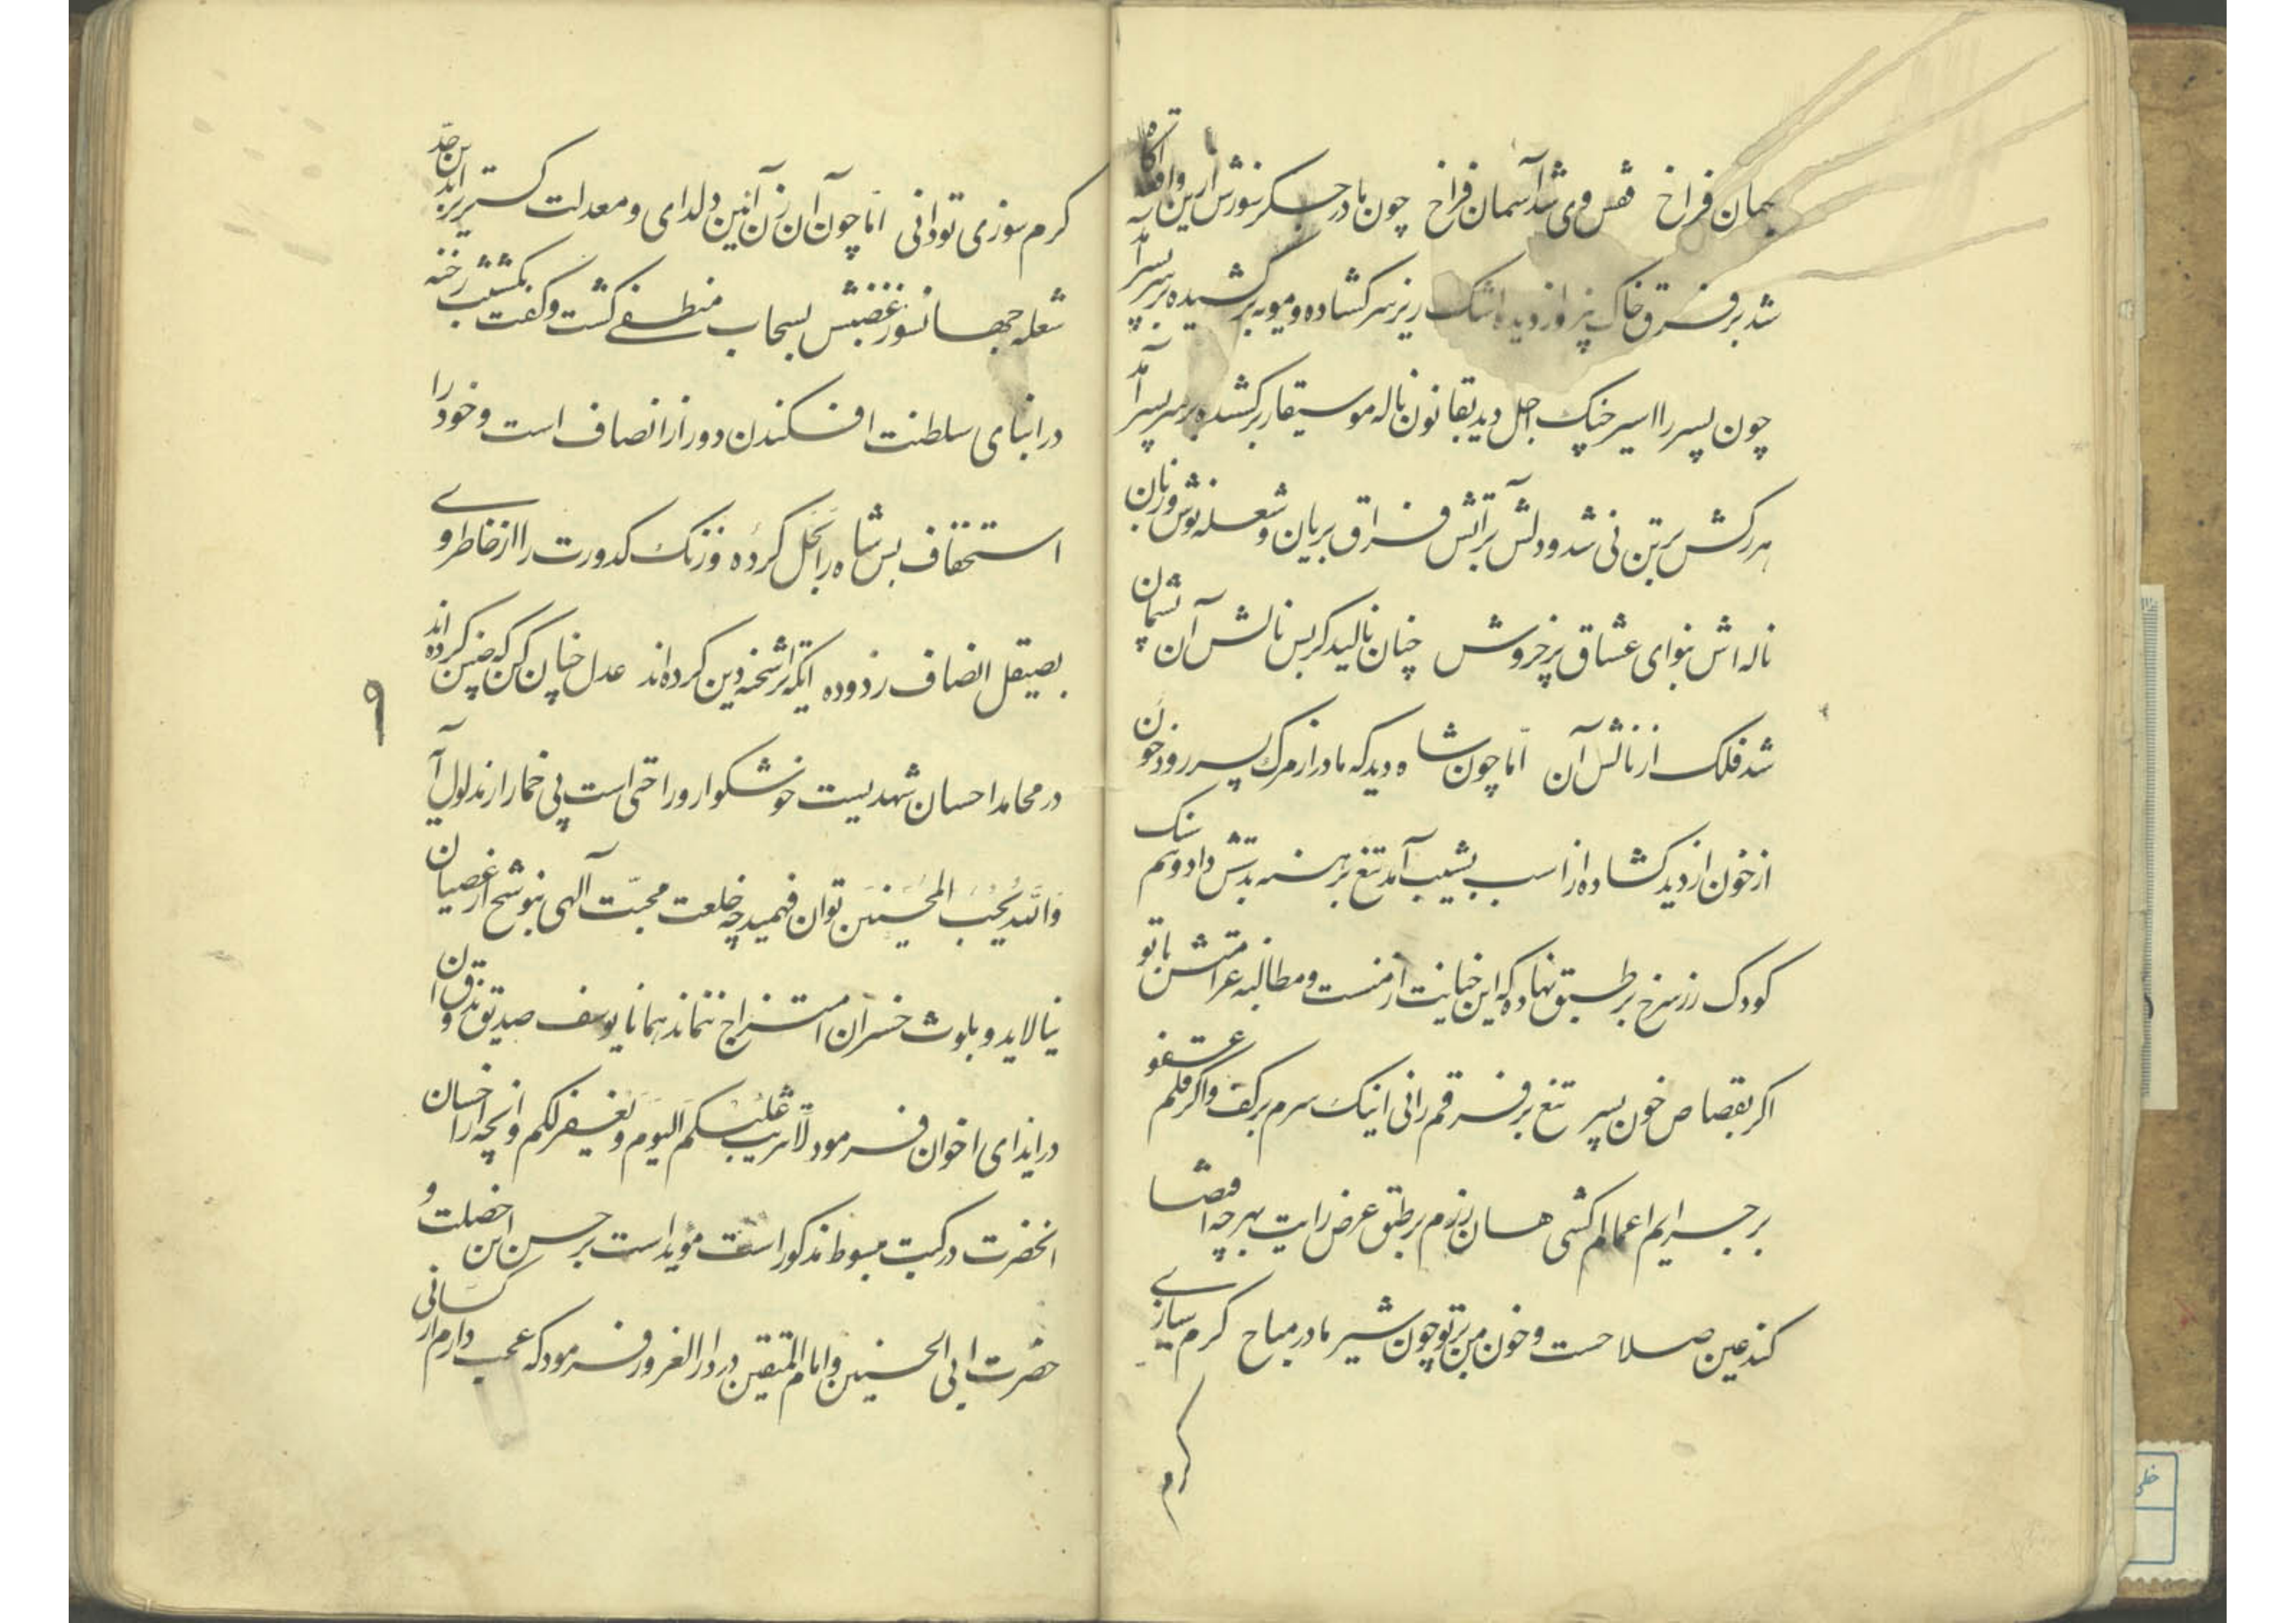 جهان فراخ قفس وی شد آسمان فراخ چون مادر جگر سوزش ازین واقعه آگاه
شد بر فرق خاک بیز و از دیده اشک ریز سر کشاده و مویه بر کشیده بر سر پسر آمد
چون پسر را اسیر چنک اجل دید بقانون ناله موسیقار بر کشیده بر سر پسر آمد
هر رکش بر تن نی شد و دلش بر آتش فراق بریان و شعله نوش وزبان
ناله اش بنوای عشاق پر خروش چنان نالید کز بس نالش آن پشیمان
شد فلک از نالش آن امّا چون شاه دید که مادر از مرک پسر رود خون
از خون از دیده کشاده از اسب بشیب آمد تیغ برهنه بدتش داد و هم سنک
کودک زر سرخ بر طبق نهاده که این خیانت از منست و مطالبه غرامتش با تو
اکر بقصاص خون پسر تیغ بر فرقم رانی اینک سرم بر کف و اکر قلم عفو
بر جرایم اعمالم کشی همسان زرم بر طبق عرض رایت بهر چه اقتضا
کند عین صلاحست و خون من بر تو چون شیر مادر مباح کرم سازی
کرم
کرم سوزی تو دانی امّا چون آن زن آئین دلدای و معدلت کستری بر این حدّ
شعله جهانسوز غضبش بسحاب منطفی کشت و کفت بکشتیب رخنه
در انبای سلطنت افکندن دور از انصاف است و خود را
استخفاف بس شاه را بحل کرده و زنک کدورت را از خاطر وی
بصیقل انصاف زدوده ایکه ترا شحنه دین کرده اند عدل چنان کن که چنین کرده اند
در محامد احسان شهدیست خوشکوار و راحتی است بی خمار از مدلول آن
وَاللّه یُحِبُّ المُحسِنین توان فهمید چه خلعت محبّت آلهی بنو شح از عصیان
نیالاید و بلوث خسران امتزاج ننماند همانا یوسف صدیق
در ایذای اخوان فرمود لا تثریب علیکم الیوم و یغفر لکم و انچه از احسان
انحضرت در کتب مبسوط مذکور است مؤید است بر حسن این خصلت و
حضرت ابی الحسنین و امام المتقین در دار الغرور فرمود که عجب دارم از کسانی
۹